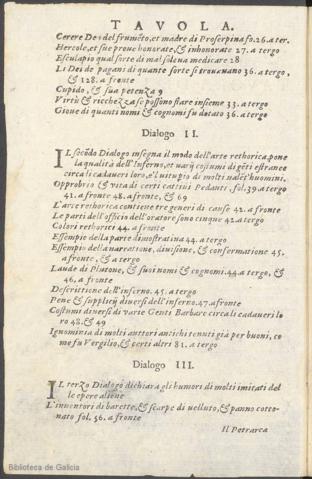 TAVOLA.
Cerere Dea del frumẽto, et madre di Proserpina fo.26.a ter.
Hercole, et sue proue honorate, & inhonorate 27. a tergo
Esculapio qual sorte di mal soleua medicare 28
Li Dei de pagani di quante sorte si trouauano 36. a tergo,
& 128. a fronte
Cupido, & sua potenza 9
Virtù & ricchezza se possono stare insieme 33. a tergo
Gioue di quanti nomi & cognomi fu dotato 36. a tergo
Dialogo II.
IL secõdo Dialogo insegna il modo dell'arte rethorica, pone
la qualità dell'Inferno, et uarij costumi di gẽti estranee
circa li cadaueri loro, e'l uitupio di molti ualẽt'huomini.
Opprobrio & uita di certi cattiui Pedanti, fol. 39. a tergo
41. a fronte 48. a fronte, & 69
L'arte rethorica contiene tre generi di cause 42. a fronte
Le parti dell'officio dell'oratore sono cinque 42. a tergo
Colori rethorici 44. a fronte
Essempie della parte dimostratiua 44. a tergo
Essempio della narratione, diuisione, & confermatione 45.
a fronte, & a tergo
Laude di Plutone, & suoi nomi & cognomi. 44. a tergo, &
46. a fronte
Descrittione dell'inferno. 45. a tergo
Pene & supplicij diuersi dell'inferno. 47. a fronte
Costumi diuersi di varie Genti Barbare circa li cadaueri lo
ro 48. & 49
Ignominia di molti auttori antichi tenuti già per buoni, co
me fu Vergilio, & certi altri 81. a tergo
Dialogo III.
IL terzo Dialogo dichiara gli humori di molti imitati del
le opere aliene
L'inuentori di barette, & scarpe di uelluto, & panno cotto-
nato fol. 56. a fronte
Il Petrarca
Biblioteca de Galicia